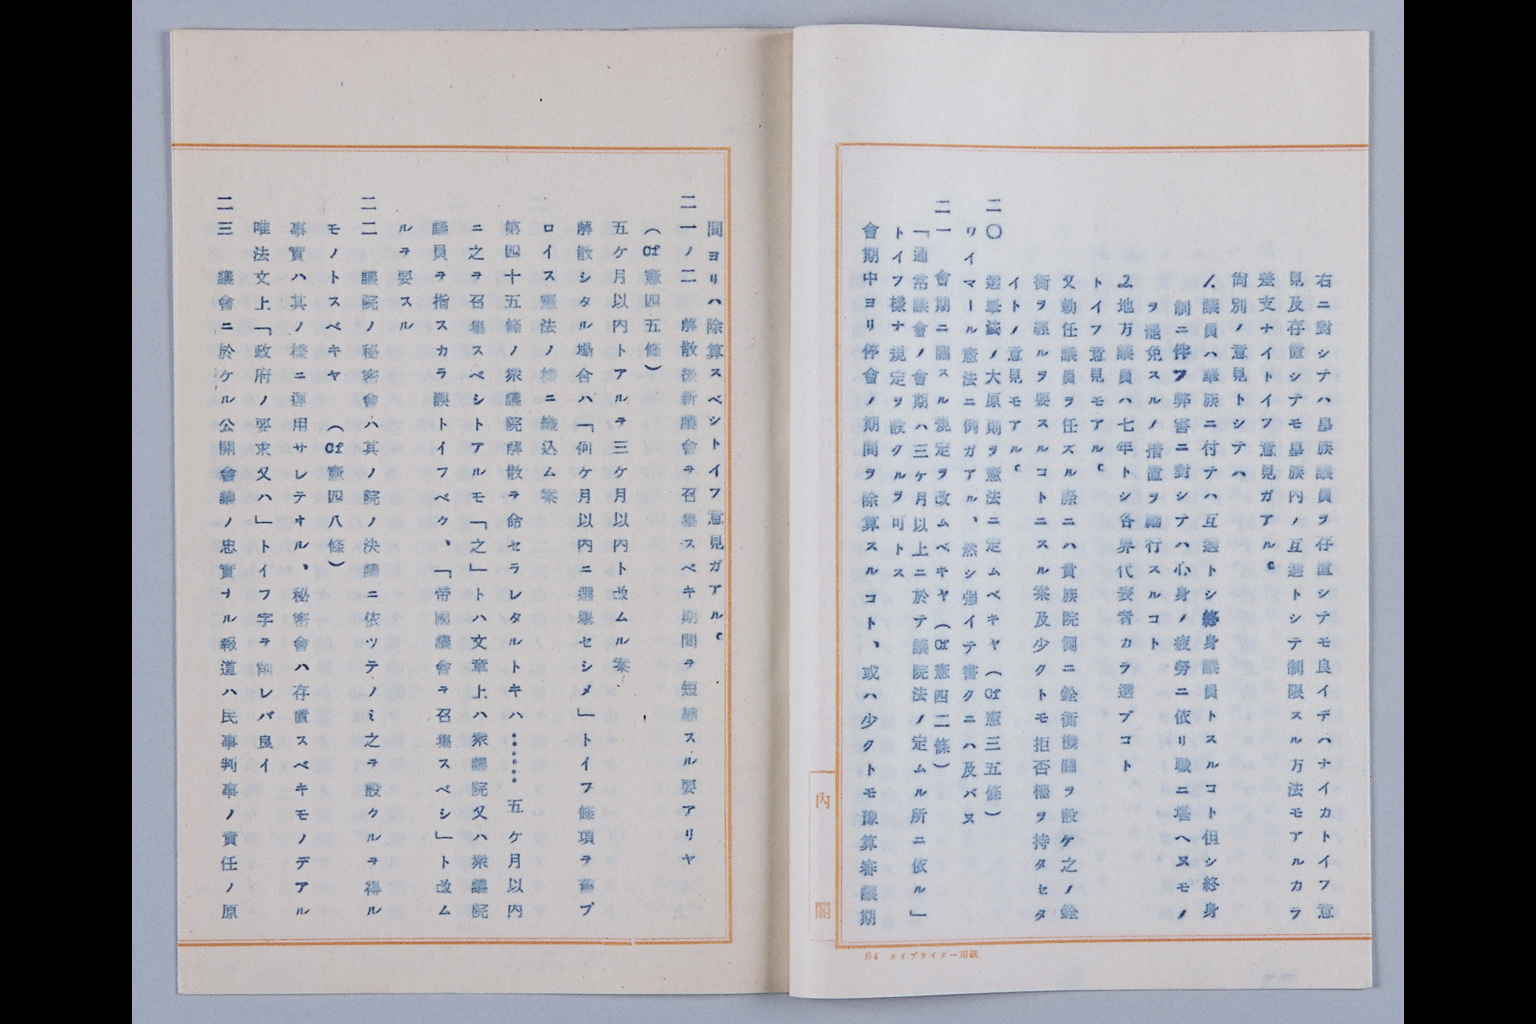 右ニ對シテハ皇族議員ヲ存置シテモ良イデハナイカトイフ意
見及存置シテモ皇族内ノ互選トシテ制限スル万法モアルカラ
差支ナイトイフ意見ガアル。
尙別ノ意見トシテハ
1.議員ハ華族ニ付テハ互選トシ終身議員トスルコト但シ終身
制ニ伴フ弊害ニ對シテハ心身ノ疲勞ニ依リ職ニ堪ヘヌモノ
ヲ罷免スルノ措置ヲ勵行スルコト
2.地万議員ハ七年トシ各界代表者カラ選ブコト
トイフ意見モアル。
又勅任議員ヲ任ズル際ニハ貴族院側ニ銓衡機關ヲ設ケ之ノ銓
衡ヲ經ルヲ要スルコトニスル案及少クトモ拒否權ヲ持タセタ
イトノ意見モアル。
二〇 選擧法ノ大原則ヲ憲法ニ定ムベキヤ(Cf憲三五條)
ワイマール憲法ニ例ガアル、然シ强イテ書クニハ及バヌ
二一 會期ニ關スル規定ヲ改ムベキヤ(Cf憲四二條)
「通常議會ノ會期ハ三ケ月以上ニ於テ議院法ノ定ムル所ニ依ル」
トイフ樣ナ規定ヲ設クルヲ可トス
會期中ヨリ停會ノ期間ヲ除算スルコト、或ハ少クトモ豫算審議期
內閣
B4 タイプライター用紙
間ヨリハ除算スベシトイフ意見ガアル。
二一ノ二 解散後新議會ヲ召集スベキ期間ヲ短縮スル要アリヤ
(Cf憲四五條)
五ケ月以内トアルヲ三ケ月以内ト改ムル案
解散シタル場合ハ「何ケ月以内ニ選擧セシメ」トイフ條項ヲ舊プ
ロイス憲法ノ樣ニ織込ム案
第四十五條ノ衆議院解散ヲ命セラレタルトキハ……五ケ月以内
ニ之ヲ召集スベシトアルモ「之」トハ文章上ハ衆議院又ハ衆議院
議員ヲ指スカラ誤トイフベク、「帝國議會ヲ召集スベシ」ト改ム
ルヲ要スル
二二 議院ノ秘密會ハ其ノ院ノ決議ニ依ツテノミ之ヲ設クルヲ得ル
モノトスベキヤ (Cf憲四八條)
事實ハ其ノ樣ニ運用サレテヰル、秘密會ハ存置スベキモノデアル
唯法文上「政府ノ要求又ハ」トイフ字ヲ削レバ良イ
二三 議會ニ於ケル公開會議ノ忠實ナル報道ハ民事判事ノ責任ノ原